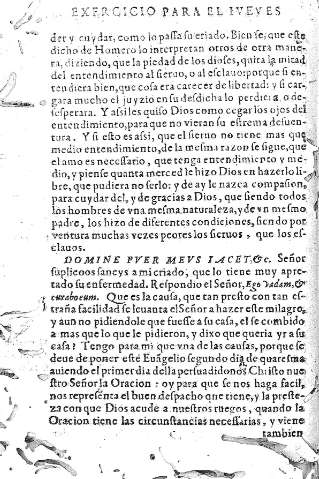 EXERCICIO PARA EL IVEVES
der y cuydar, como lo passa su criado. Bien se, que este
dicho de Homero lo interpretan otros de otra mane-
ra, diziendo, que la piedad de los dioses, quita la mitad
del entendimiento al sieruo, o al esclauo: porque si en-
tendiera bien, que cosa era carecer de libertad: y si car-
gara mucho el juyzio en su desdicha lo perdiera, o de-
sesperara. Y assi les quiso Dios como cegar los ojos del
entendimiento, para que no vieran su estrema desuen-
tura. Y si esto es assi, que el sieruo no tiene mas que
medio entendimiento, de la mesma razon se sigue, que
el amo es necessario, que tenga entendimiento y me-
dio, y piense quanta merced le hizo Dios en hazerlo li-
bre, que pudiera no serlo: y de ay le nazca compasion,
para cuydar del, y de gracias a Dios, que siendo todos
los hombres de vna mesma naturaleza, y de vn mesmo
padre, los hizo de diferentes condiciones, siendo por
ventura muchas vezes peores los sieruos, que los es-
clauos.
DOMINE PVER MEVS IACET, &c. Señor
suplicoos saneys a mi criado, que lo tiene muy apre-
tado su enfermedad. Respondio el Señor, Ego vadam, &
curabo eum. Que es la causa, que tan presto con tan es-
traña facilidad se leuanta el Señor a hazer este milagro,
y aun no pidiendole que fuesse a su casa, el se combido
a mas que lo que le pidieron, y dixo que queria yr a su
casa? Tengo para mi que vna de las causas, porque se
deue de poner este Euãgelio segundo dia de quaresma
auiendo el primer dia della persuadidonos Christo nues-
tro Señor la Oracion: oy para que se nos haga facil,
nos representa el buen despacho que tiene, y la preste-
za con que Dios acude a nuestros ruegos, quando la
Oracion tiene las circunstancias necessarias, y viene
tambien